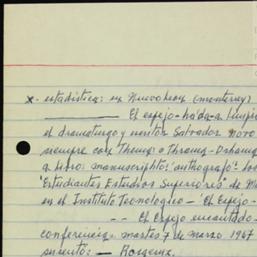 x- estadística: en Nuevo León (Monterrey)
El espejo-hada-a limpi
el dramaturgo y mentor Salvador Novo
siempre con Themg o Thromg-Dshamg
a libro: manuscriptito: 'anthografó':
"Estudiantes Estudios Superiores" de M
en el Instituto Tecnológico - 'El Espejo -
-- El Espejo encantado -
conferencia, martes 7 de marzo 1967